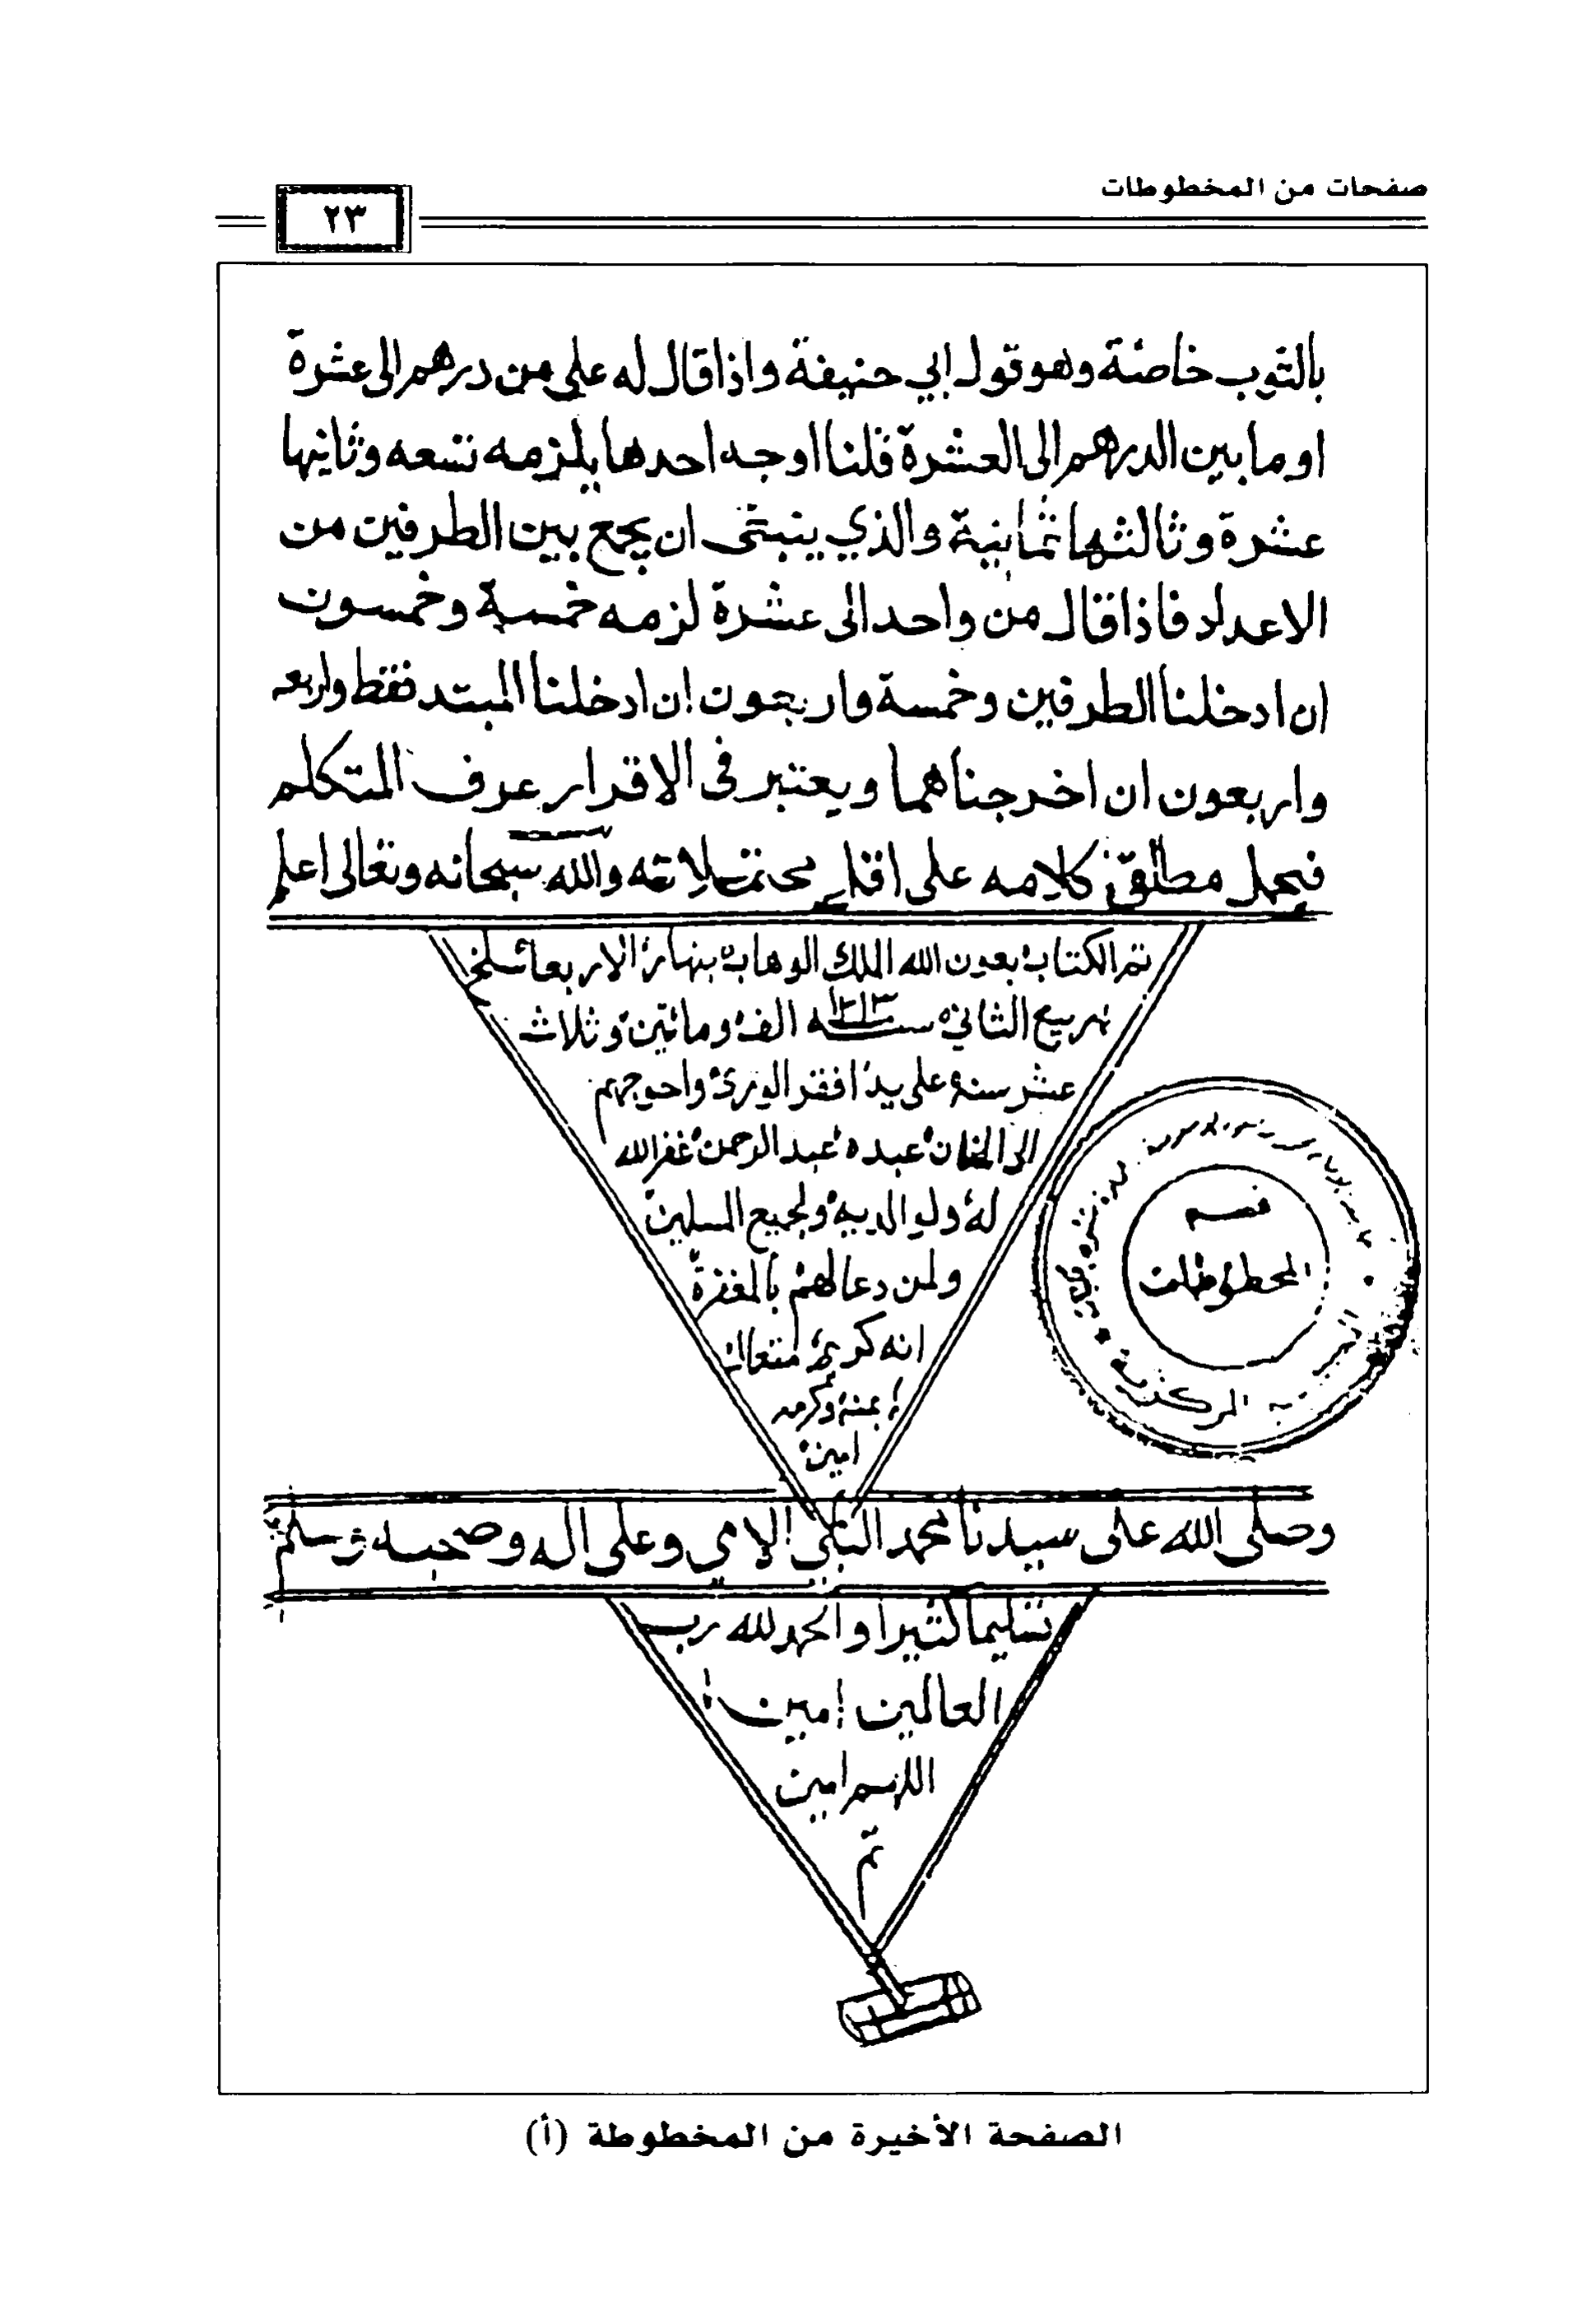 صفحات من المخطوطات
٢٣
بالثوب خاصة وهو قول ابي حنيفة واذا قال له علي من درهم الى عشرة
او ما بين الدرهم الى العشرة قلنا اوجه احدها يلزمه تسعه وثانيها
عشرة وثالثها ثمانية والذي ينبغي ان يجمع بين الطرفين من
الاعداد فاذا قال من واحد الى عشرة لزمه خمسة وخمسون
ان ادخلنا الطرفين وخمسة واربعون ان ادخلنا المبتد فقط واربعه
واربعون ان اخرجناهما ويعتبر في الاقرار عرف المتكلم
فيحمل مطلق كلامه على اقل محتملاته والله سبحانه وتعالى اعلم
تم الكتاب بعون الله الملك الوهاب بنهار الاربعا سلخ
ربيع الثاني سنه ١٢١٣ الف وماتين وثلاث
عشر سنة على يد افقر الورى واحوجهم
الى المنان عبده عبد الرحمن غفر الله
له ولوالديه ولجميع المسلمين
ولمن دعا لهم بالمغفرة
انه كريم متعال
بمنه وكرمه
امين
وصلى الله على سيدنا محمد النبي الامي وعلى اله وصحبه وسلم
تسليما كثيرا والحمد لله رب
العالمين امين
اللهم امين
تم
قسم
المخطوطات
المركزية
الصفحة الأخيرة من المخطوطة (أ)